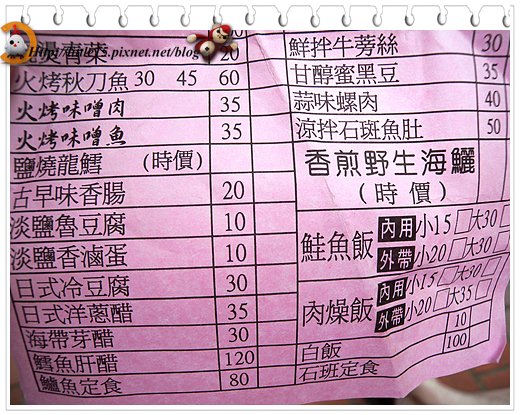 青菜 20
火烤秋刀魚 30 45 60
火烤味噌肉 35
火烤味噌魚 35
鹽燒龍鱈 (時價)
古早味香腸 20
淡鹽魯豆腐 10
淡鹽香滷蛋 10
日式冷豆腐 30
日式洋蔥醋 35
海帶芽醋 30
鱈魚肝醋 120
鱸魚定食 80
鮮拌牛蒡絲 30
甘醇蜜黑豆 35
蒜味螺肉 40
涼拌石斑魚肚 50
香煎野生海鱺
(時價)
鮭魚飯 內用 小15□大30□
外帶 小20□大30□
肉燥飯 內用 小15□大30□
外帶 小20□大35□
白飯 10
石班定食 100